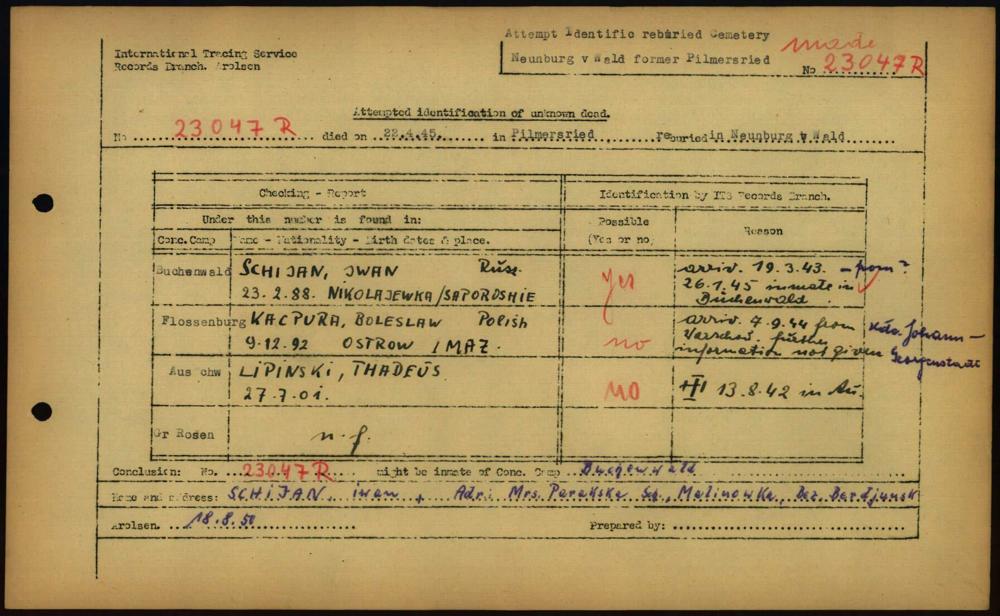 International Tracing Service
Records Branch. Arolsen
Attempt Identific reburied Cemetery
Neunburg v Wald former Pilmersried
made
No 23047R
Attempted identification of unknown dead.
No 23047 R died on 22.4.45. in Pilmersried reburied in Neunburg v Wald
Checking - Report
Identification by ITS Records Branch.
Under this number is found in:
Possible
(Yes or no)
Reason
Conc. Camp
Name - Nationality - Birth dates & place.
Buchenwald
SCHIJAN, JWAN Russ.
23.2.88. NIKOLAJEWKA/SAPOROSHIE
yes
arriv. 19.3.43. -from?
26.1.45 inmate in
Buchenwald.
Flossenburg
KACPURA, BOLESLAW Polish
9.12.92 OSTROW /MAZ.
no
arriv. 7.9.44 from
Warschau. further
information not given
Kdo. Johann-
Georgenstadt
Aus chw
LIPINSKI, THADEUS
27.7.01.
NO
13.8.42 in Au.
Gr Rosen
n.f.
Conclusion: No. 23047R might be inmate of Conc. Camp
Home and address: SCHIJAN, iwan, Adr. Mrs. Sch, Malinowka, Bez. Berdjansk
Arolsen. 18.8.50
Prepared by: